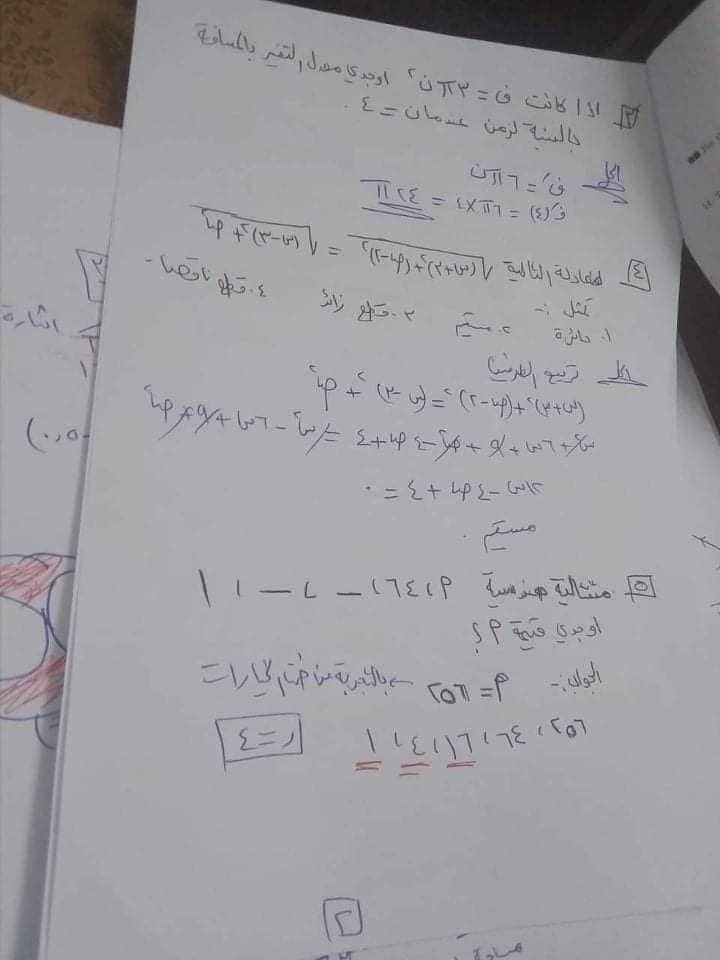 ٣ اذا كانت ف = ٣πن٢ اوجدي معدل التغير بالمسافة
بالنسبة لزمن عندما ن = ٤.
الحل
فَ = ٦πن
فَ(٤) = ٦π×٤ = ٢٤π
٤ المعادلة التالية √(س+٣)٢+(ص-٢)٢ = √(س-٣)٢+ص٢
تمثل :-
١. دائرة ٢. مستقيم ٣. قطع زائد ٤. قطع ناقص
الحل تربيع الطرفين
(س+٣)٢+(ص-٢)٢ = (س-٣)٢ + ص٢
س٢+٦س+٩+ص٢-٤ص+٤ = س٢-٦س+٩+ص٢
١٢س-٤ص+٤ = ٠
مستقيم.
٥ متتالية هندسية م، ٦٤، – – ١
اوجدي قيمة م؟
الجواب:- م = ٢٥٦ بالتجربة من الخيارات
٢٥٦، ٦٤، ١٦، ٤، ١ ر=٤
اثارة
٢